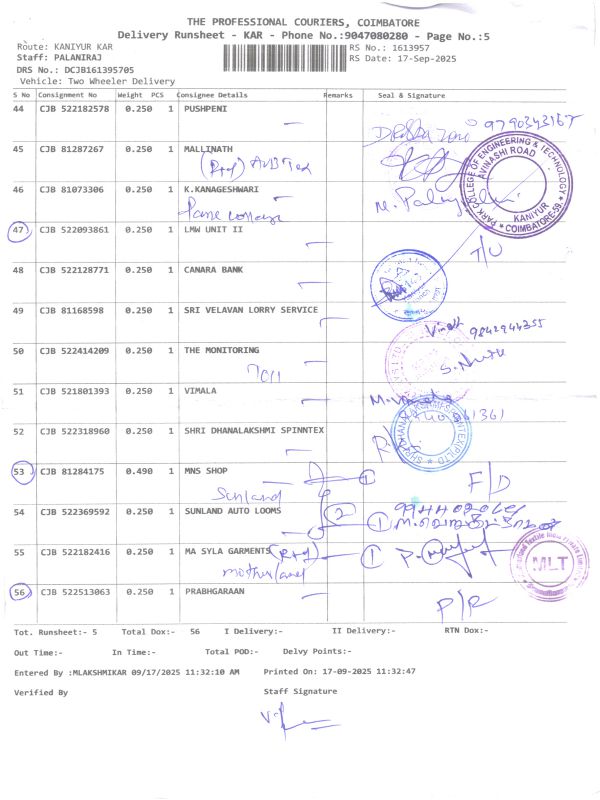 THE PROFESSIONAL COURIERS, COIMBATORE
Delivery Runsheet - KAR - Phone No.:9047080280 - Page No.:5
Route: KANIYUR KAR
RS No.: 1613957
Staff: PALANIRAJ
RS Date: 17-Sep-2025
DRS No.: DCJB161395705
Vehicle: Two Wheeler Delivery
S No Consignment No Weight PCS Consignee Details Remarks Seal & Signature
44 CJB 522182578 0.250 1 PUSHPENI
9790343167
45 CJB 81287267 0.250 1 MALLINATH
(Prof)
PARK COLLEGE OF ENGINEERING & TECHNOLOGY
AVINASHI ROAD
KANIYUR
COIMBATORE-59
46 CJB 81073306 0.250 1 K.KANAGESHWARI
47 CJB 522093861 0.250 1 LMW UNIT II
T/U
48 CJB 522128771 0.250 1 CANARA BANK
49 CJB 81168598 0.250 1 SRI VELAVAN LORRY SERVICE
9842944355
50 CJB 522414209 0.250 1 THE MONITORING
51 CJB 521801393 0.250 1 VIMALA
52 CJB 522318960 0.250 1 SHRI DHANALAKSHMI SPINNTEX
53 CJB 81284175 0.490 1 MNS SHOP
1
F/D
Sunland
54 CJB 522369592 0.250 1 SUNLAND AUTO LOOMS
2
1
55 CJB 522182416 0.250 1 MA SYLA GARMENTS
1
Motherland
MLT
56 CJB 522513063 0.250 1 PRABHGARAAN
P/R
Tot. Runsheet:- 5 Total Dox:- 56 I Delivery:- II Delivery:- RTN Dox:-
Out Time:- In Time:- Total POD:- Delvy Points:-
Entered By :MLAKSHMIKAR 09/17/2025 11:32:10 AM Printed On: 17-09-2025 11:32:47
Verified By Staff Signature